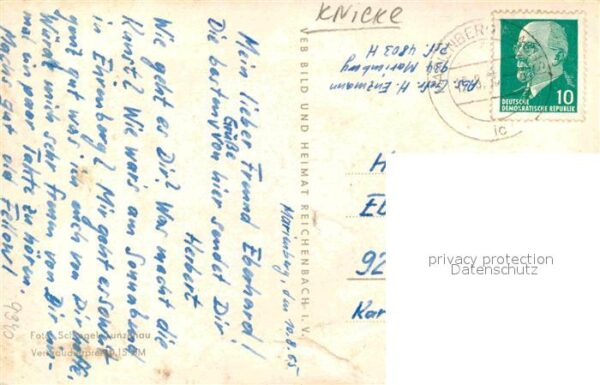 KNICKE
Marienberg, den 10.8.65
Mein lieber Freund Eberhard!
Die besten Grüße
von hier sendet Dir
Herbert
Wie geht es Dir? Was macht die
Kunst? Wie wars am Sonnabend
in Ehrenberg? Mir geht es
ganz gut was ich auch von Dir hoffe.
Würde mich sehr freun von Dir ein-
mal ein paar Takte zu hören.
Machs gut old Fellow!
VEB BILD UND HEIMAT REICHENBACH I. V.
Abs. Gefr. H. Enzmann
934 Marienberg
Pff. 4803 H
DEUTSCHE
DEMOKRATISCHE REPUBLIK
10
MARIENBERG
ic
92
Kar
privacy protection
Datenschutz
9340
Foto:
Verbraucherpreis 0,15 DM